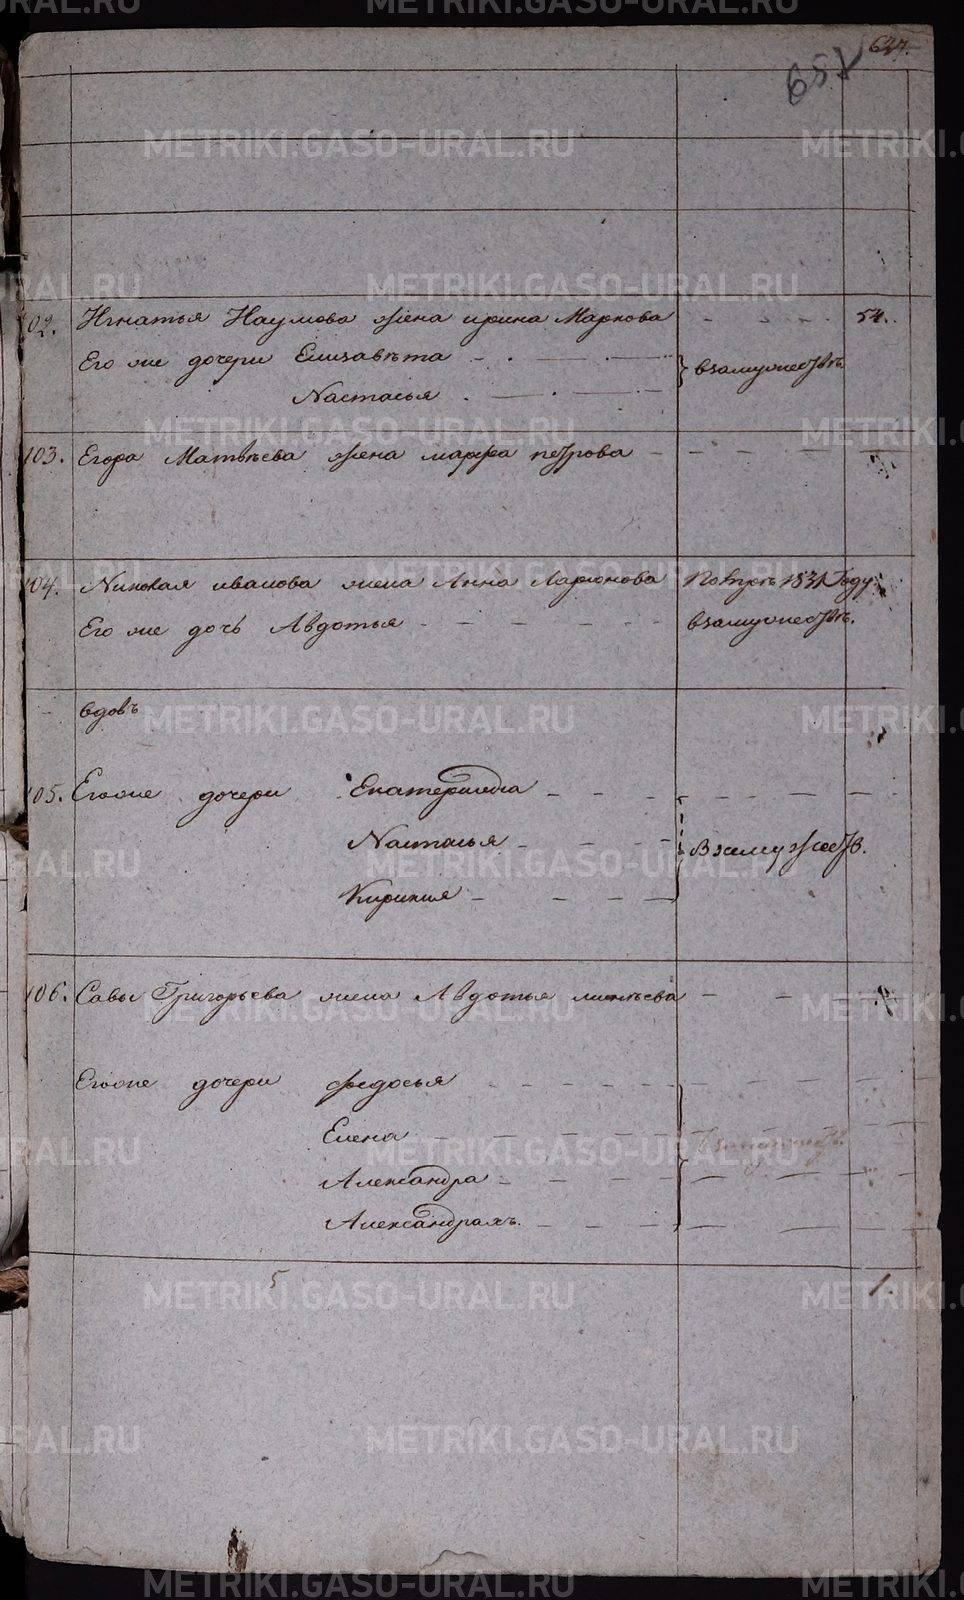 647.
657
102. Игнатья Наумова жена ирина Маркова - - - - 54.
Его же дочери Елизавѣта
взамужествѣ
Настасья
103. Егора Матвѣева жена марфа петрова
104. Николая иванова жена Анна Ларионова
Году
Его же дочь Авдотья
взамужествѣ.
вдовъ
105. Егоже дочери Екатерина
Настасья
Взамужеств.
106. Савы Григорьева жена Авдотья
Егоже дочери федосья
Елена
Взамужеств.
Александра
5
1.
METRIKI.GASO-URAL.RU